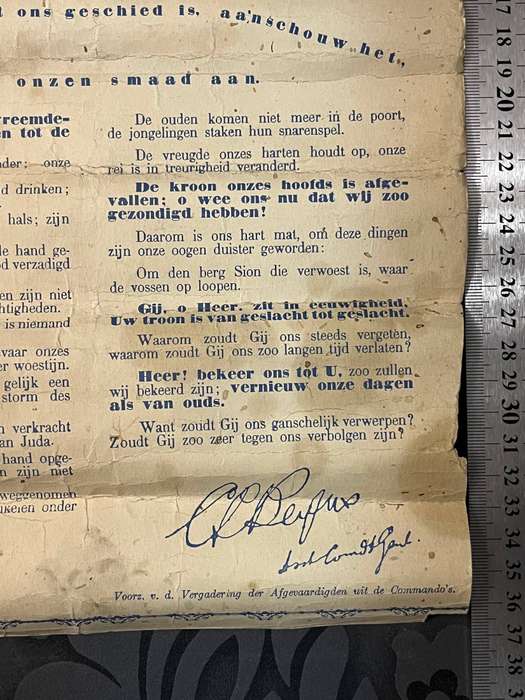 ons geschied is, aanschouw het,
onzen smaad aan.
reemde-
en tot de
nder; onze
d drinken;
hals; zijn
de hand ge-
od verzadigd
en zijn niet
htigheden.
is niemand
vaar onzes
er woestijn.
gelijk een
storm des
n verkracht
an Juda.
hand opge-
n zijn niet
weggenomen
ukelen onder
De ouden komen niet meer in de poort,
de jongelingen staken hun snarenspel.
De vreugde onzes harten houdt op, onze
rei is in treurigheid veranderd.
De kroon onzes hoofds is afge-
vallen; o wee ons nu dat wij zoo
gezondigd hebben!
Daarom is ons hart mat, om deze dingen
zijn onze oogen duister geworden:
Om den berg Sion die verwoest is, waar
de vossen op loopen.
Gij, o Heer, zit in eeuwigheid,
Uw troon is van geslacht tot geslacht.
Waarom zoudt Gij ons steeds vergeten,
waarom zoudt Gij ons zoo langen tijd verlaten?
Heer! bekeer ons tot U, zoo zullen
wij bekeerd zijn; vernieuw onze dagen
als van ouds.
Want zoudt Gij ons ganschelijk verwerpen?
Zoudt Gij zoo zeer tegen ons verbolgen zijn?
Voorz. v. d. Vergadering der Afgevaardigden uit de Commando's.
17
18
19
20
21
22
23
24
25
26
27
28
29
30
31
32
33
34
35
36
37
38